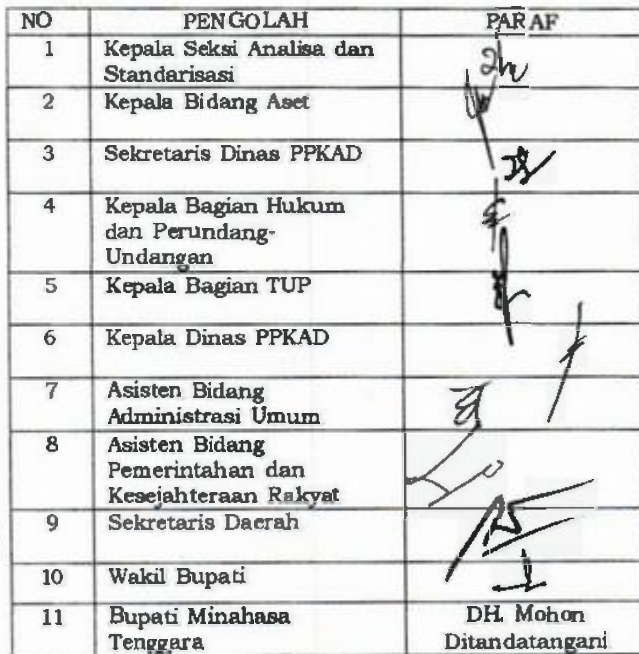 NO PENGOLAH PARAF
1 Kepala Seksi Analisa dan
Standarisasi
2 Kepala Bidang Aset
3 Sekretaris Dinas PPKAD
4 Kepala Bagian Hukum
dan Perundang-
Undangan
5 Kepala Bagian TUP
6 Kepala Dinas PPKAD
7 Asisten Bidang
Administrasi Umum
8 Asisten Bidang
Pemerintahan dan
Kesejahteraan Rakyat
9 Sekretaris Daerah
10 Wakil Bupati
11 Bupati Minahasa DH. Mohon
Tenggara Ditandatangani